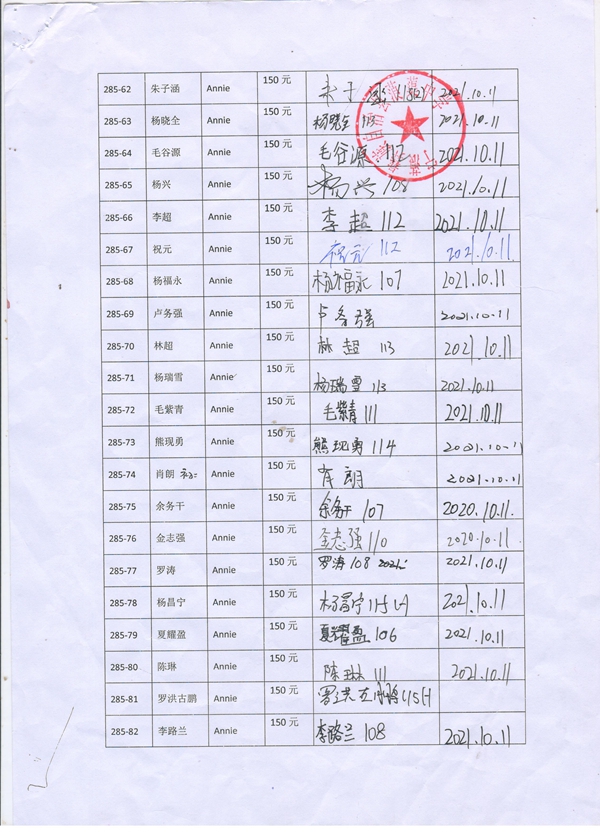 285-62 朱子涵 Annie 150 元 朱子涵 2021.10.11
285-63 杨晓全 Annie 150 元 杨晓全 113 2021.10.11
285-64 毛谷源 Annie 150 元 毛谷源 112 2021.10.11
285-65 杨兴 Annie 150 元 杨兴 108 2021.10.11
285-66 李超 Annie 150 元 李超 112 2021.10.11
285-67 祝元 Annie 150 元 祝元 112 2021.10.11
285-68 杨福永 Annie 150 元 杨福永 107 2021.10.11
285-69 卢务强 Annie 150 元 卢务强 2021.10.11
285-70 林超 Annie 150 元 林超 113 2021.10.11
285-71 杨瑞雪 Annie 150 元 杨瑞雪 113 2021.10.11
285-72 毛紫青 Annie 150 元 毛紫青 111 2021.10.11
285-73 熊现勇 Annie 150 元 熊现勇 114 2021.10.11
285-74 肖朗 Annie 150 元 肖朗 2021.10.11
285-75 余务干 Annie 150 元 余务干 107 2020.10.11.
285-76 金志强 Annie 150 元 金志强 110 2020.10.11
285-77 罗涛 Annie 150 元 罗涛 108 2021.10.11
285-78 杨昌宁 Annie 150 元 杨昌宁 115 2021.10.11
285-79 夏耀盈 Annie 150 元 夏耀盈 106 2021.10.11
285-80 陈琳 Annie 150 元 陈琳 111 2021.10.11
285-81 罗洪古鹏 Annie 150 元 罗洪古鹏
285-82 李路兰 Annie 150 元 李路兰 108 2021.10.11